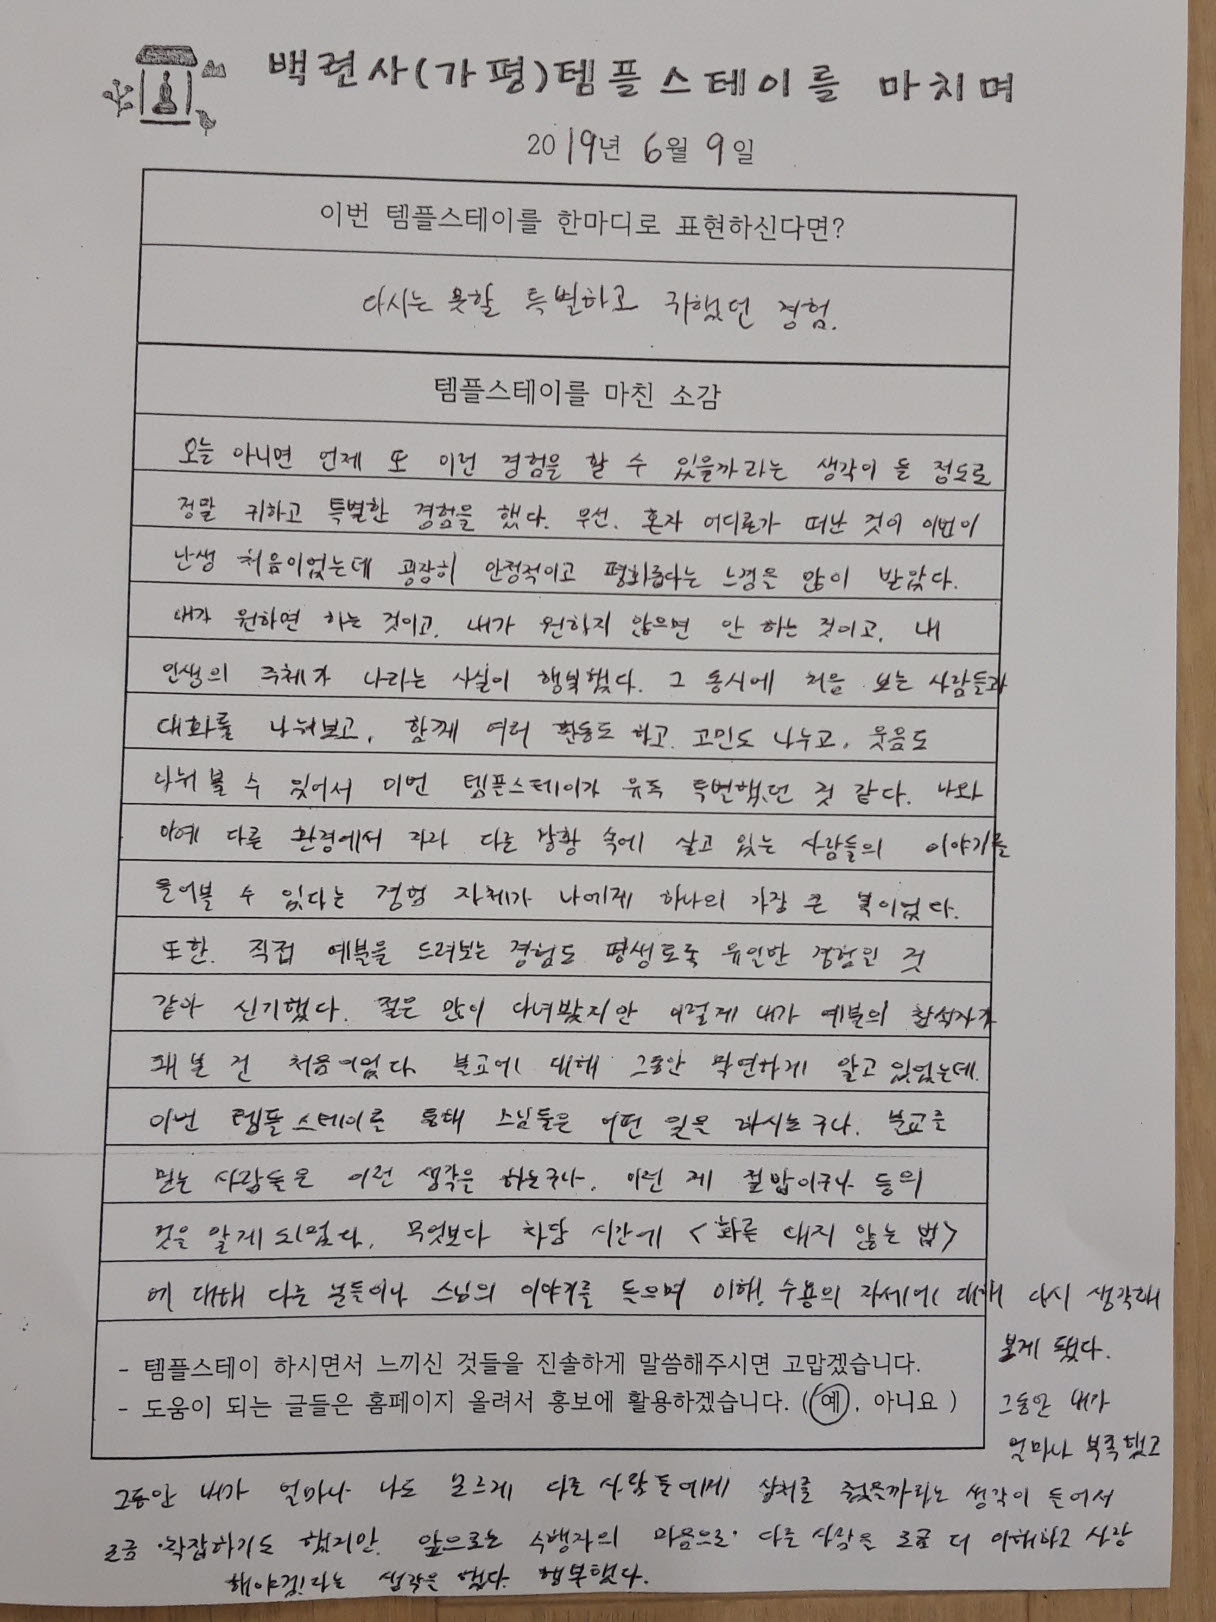 백련사(가평)템플스테이를 마치며
2019년 6월 9일
이번 템플스테이를 한마디로 표현하신다면?
다시는 못할 특별하고 귀했던 경험.
템플스테이를 마친 소감
오늘 아니면 언제 또 이런 경험을 할 수 있을까라는 생각이 들 정도로
정말 귀하고 특별한 경험을 했다. 우선, 혼자 어디론가 떠난 것이 이번이
난생 처음이었는데 굉장히 안정적이고 평화롭다는 느낌을 많이 받았다.
내가 원하면 하는 것이고, 내가 원하지 않으면 안 하는 것이고, 내
인생의 주체가 나라는 사실이 행복했다. 그 동시에 처음 보는 사람들과
대화를 나눠보고, 함께 여러 활동도 하고, 고민도 나누고, 웃음도
나눠 볼 수 있어서 이번 템플스테이가 유독 특별했던 것 같다. 나와
아예 다른 환경에서 자라 다른 상황 속에 살고 있는 사람들의 이야기를
들어볼 수 있다는 경험 자체가 나에게 하나의 가장 큰 복이었다.
또한, 직접 예불을 드려보는 경험도 평생토록 유일한 경험인 것
같아 신기했다. 절은 많이 다녀봤지만 이렇게 내가 예불의 참석자가
돼 본 건 처음이었다. 불교에 대해 그동안 막연하게 알고 있었는데,
이번 템플스테이를 통해 스님들은 어떤 일을 하시는구나, 불교를
믿는 사람들은 이런 생각을 하는구나, 이런 게 절밥이구나 등의
것을 알게 되었다. 무엇보다 차담 시간에 <화를 내지 않는 법>
에 대해 다른 분들이나 스님의 이야기를 들으며 이해, 수용의 자세에 대해 다시 생각해
보게 됐다.
- 템플스테이 하시면서 느끼신 것들을 진솔하게 말씀해주시면 고맙겠습니다.
- 도움이 되는 글들은 홈페이지 올려서 홍보에 활용하겠습니다. (예, 아니요 )
그동안 내가
얼마나 부족했고
그동안 내가 얼마나 나도 모르게 다른 사람들에게 상처를 줬을까라는 생각이 들어서
조금 착잡하기도 했지만, 앞으로는 수행자의 마음으로 다른 사람을 조금 더 이해하고 사랑
해야겠다라는 생각을 했다. 행복했다.